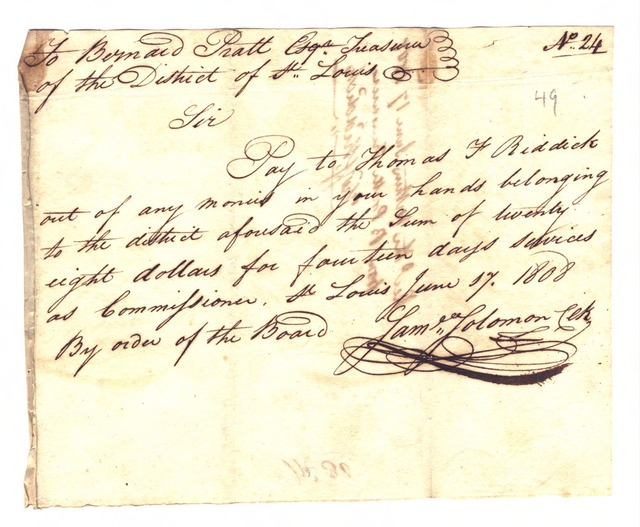 To Bernard Pratt Esqr. Treasurer
of the District of St. Louis
No. 24
49
Sir
Pay to Thomas F Riddick
out of any monies in your hands belonging
to the district aforesaid the Sum of twenty
eight dollars for fourteen days services
as Commissioner. St Louis June 17. 1808
By order of the Board
Saml. Solomon Clk